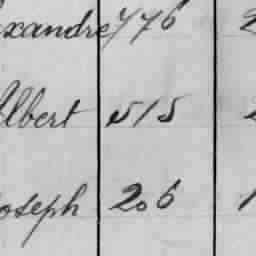 exandre 776 2
Albert 515 2
oseph 206 1